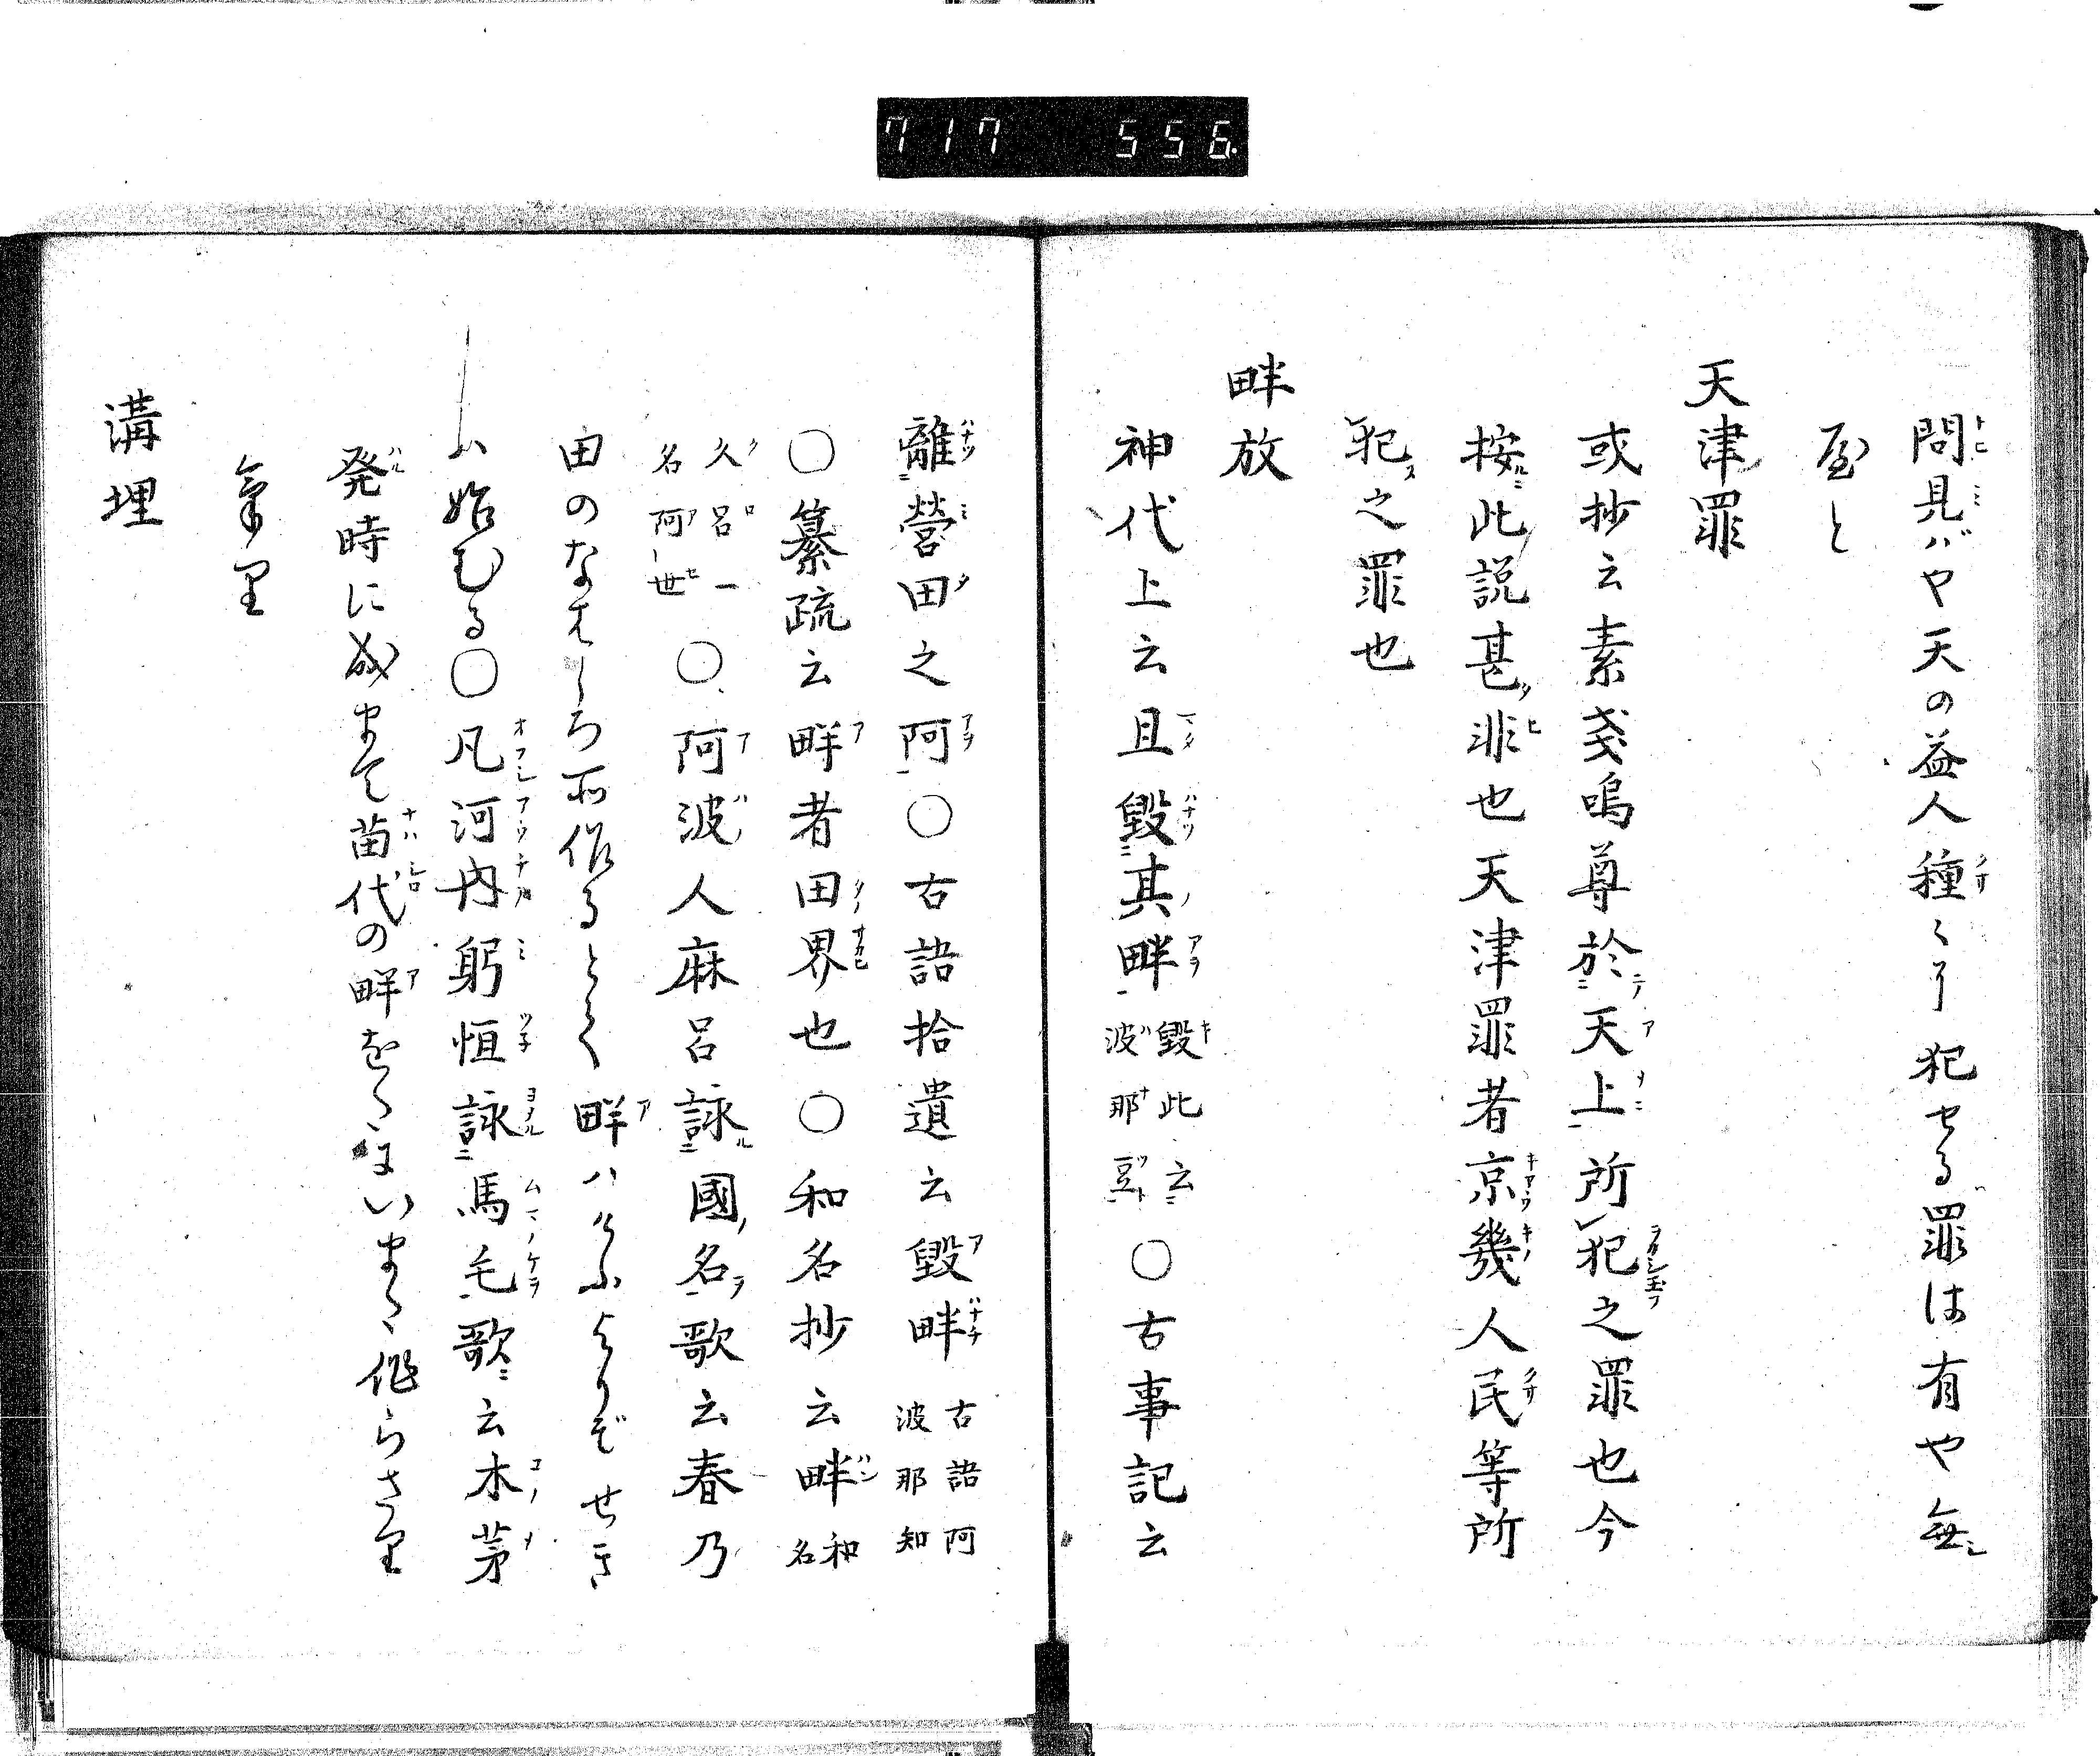 717 556.
問見バや天の益人種〻に犯せる罪は有や無
屋と
天津罪
或抄云素戔嗚尊於天上所犯之罪也今
按此説甚非也天津罪者京幾人民等所
犯之罪也
畔放
神代上云且毀其畔 毀此云波那豆 〇古事記云
離營田之阿〇古語拾遺云毀畔 古語阿波那知
〇纂疏云畔者田界也〇和名抄云畔 和名
久呂一名阿世 〇阿波人麻呂詠國名歌云春乃
田のなはしろ所作るとて畔ハけふよりぞせき
ハ始むる〇凡河内躬恒詠馬毛歌云木茅
発時に成まて苗代の畔をたにいまた作らさり
氣里
溝埋